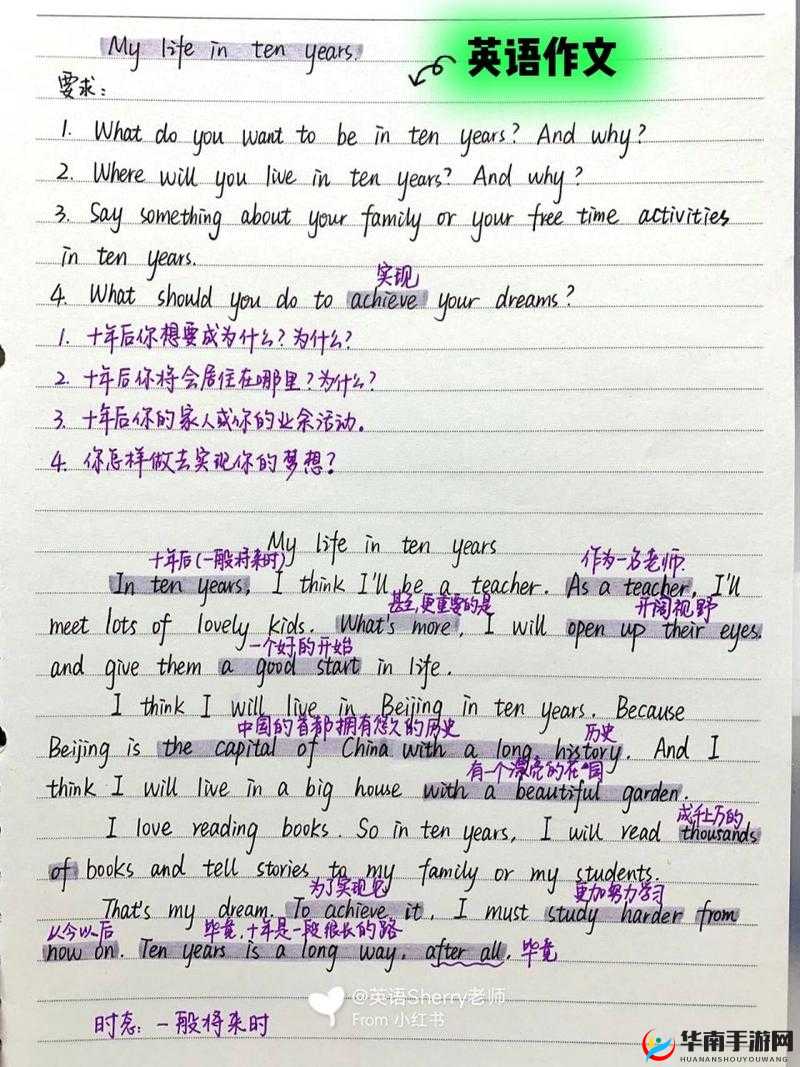 My life in ten years.
英语作文
要求:
1. What do you want to be in ten years? And why?
2. Where will you live in ten years? And why?
3. Say something about your family or your free time activities
in ten years.
实现
4. What should you do to achieve your dreams?
1. 十年后你想要成为什么?为什么?
2. 十年后你将会居住在哪里?为什么?
3. 十年后你的家人或你的业余活动。
4. 你怎样做去实现你的梦想?
My life in ten years
十年后(一般将来时) 作为一名老师.
In ten years, I think I'll be a teacher. As a teacher, I'll
甚至,更重要的是 开阔视野
meet lots of lovely kids. What's more, I will open up their eyes.
一个好的开始
and give them a good start in life.
I think I will live in Beijing in ten years. Because
中国的首都 拥有悠久的历史 历史
Beijing is the capital of China with a long history. And I
有一个漂亮的花园
think I will live in a big house with a beautiful garden.
成千上万的
I love reading books. So in ten years, I will read thousands
of books and tell stories to my family or my students.
为了实现它 更加努力学习
That's my dream. To achieve it, I must study harder from
从今以后 毕竟,十年是一段很长的路
now on. Ten years is a long way, after all. 毕竟
@英语Sherry老师
From 小红书
时态: 一般将来时
华南手游网
HUANANSHOUYOUWANG